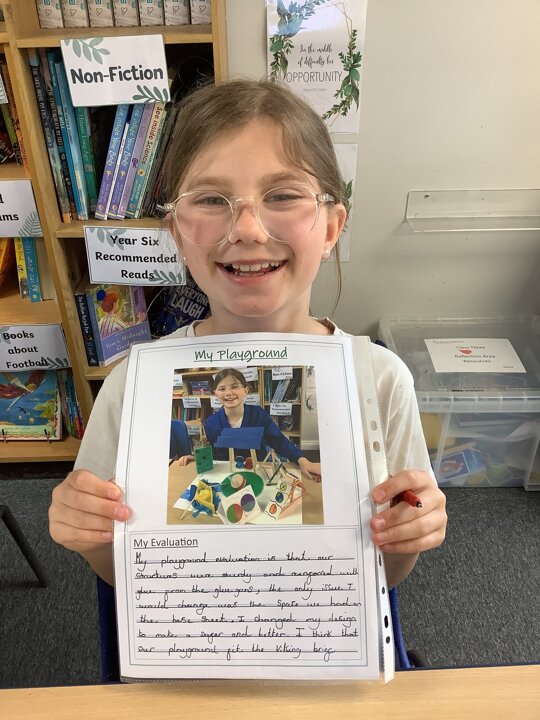 Non-Fiction
In the middle
of difficulty lies
OPPORTUNITY
Year Six
Recommended
Reads
Books
about
Football
Class Three
Reflection Area
Resources
See Inside Science
LAUGH
My Playground
My Evaluation
My playground evaluation is that our
structures were sturdy and reinforced with
glue from the glue guns, the only issue I
would change was the space we had on
the base sheet, I changed my design
to make a safer and better. I think that
our playground fit the Viking brief.